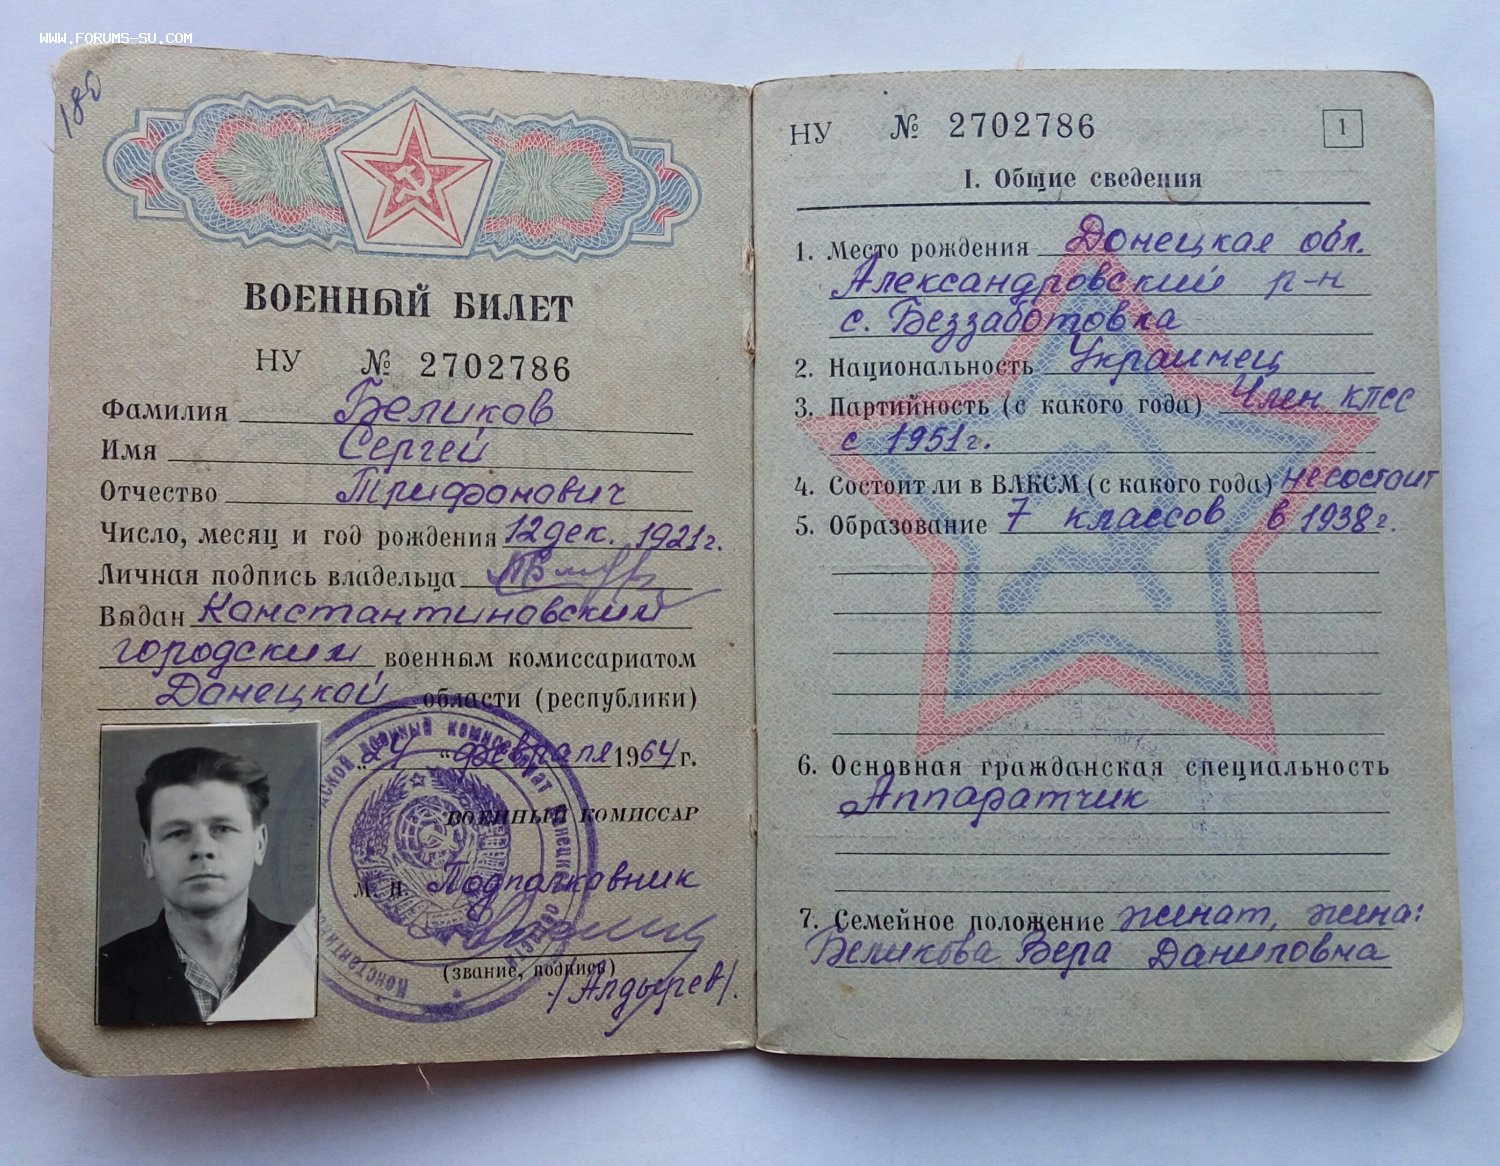 www.FORUMS-SU.COM
180
ВОЕННЫЙ БИЛЕТ
НУ № 2702786
Фамилия Беликов
Имя Сергей
Отчество Трифонович
Число, месяц и год рождения 12 дек. 1921 г.
Личная подпись владельца
Выдан Константиновским
городским военным комиссариатом
Донецкой области (республики)
„24 “ февраля 1964 г.
ВОЕННЫЙ КОМИССАР
М. П. Подполковник
(звание, подпись)
/Алдырев/.
НУ № 2702786
1
I. Общие сведения
1. Место рождения Донецкая обл.
Александровский р-н
с. Беззаботовка
2. Национальность Украинец
3. Партийность (с какого года) Член КПСС
с 1951 г.
4. Состоит ли в ВЛКСМ (с какого года) не состоит
5. Образование 7 классов в 1938 г.
6. Основная гражданская специальность
Аппаратчик
7. Семейное положение женат, жена:
Беликова Вера Даниловна